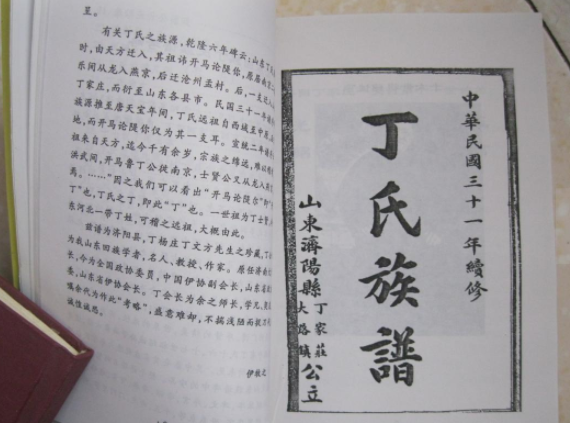 至。
有关丁氏之族源，乾隆六年碑云：山东丁
时，由天方迁入，其祖讳开马论陡你，原居南
乐间从龙入燕京，后迁沧州孟村。后，一支
丁家庄，而衍至山东各县市。民国三十一年
族源推至唐天宝年间，丁氏远祖自西域至中
地，而开马论陡你仅为其一支耳。宣统二年
祖来自天方，迄今千有余岁，宗族之绵远，难以
洪武间，开马鲁丁公从南京，士贤公又从龙入
焉。……”因之我们可以看出“开马论陡你”
丁”也，丁氏之丁，即此“丁”也。一世祖为丁士
东河北一带丁姓，可稽之远祖，大概由此。
兹谱为济阳县，丁杨庄丁文方先生之珍藏，丁
为我山东回族学者，名人、教授、作家。原任济南
长，今为全国政协委员，中国伊协副会长，山东省
委，山东省伊协会长。丁会长为余之师长，学兄，
嘱余代为作此“考略”，盛意难却，不揣浅陋而
诚惶诚恐。
伊牧之
中華民國三十一年續修
丁氏族譜
山東濟陽縣丁家莊大路鎮公立